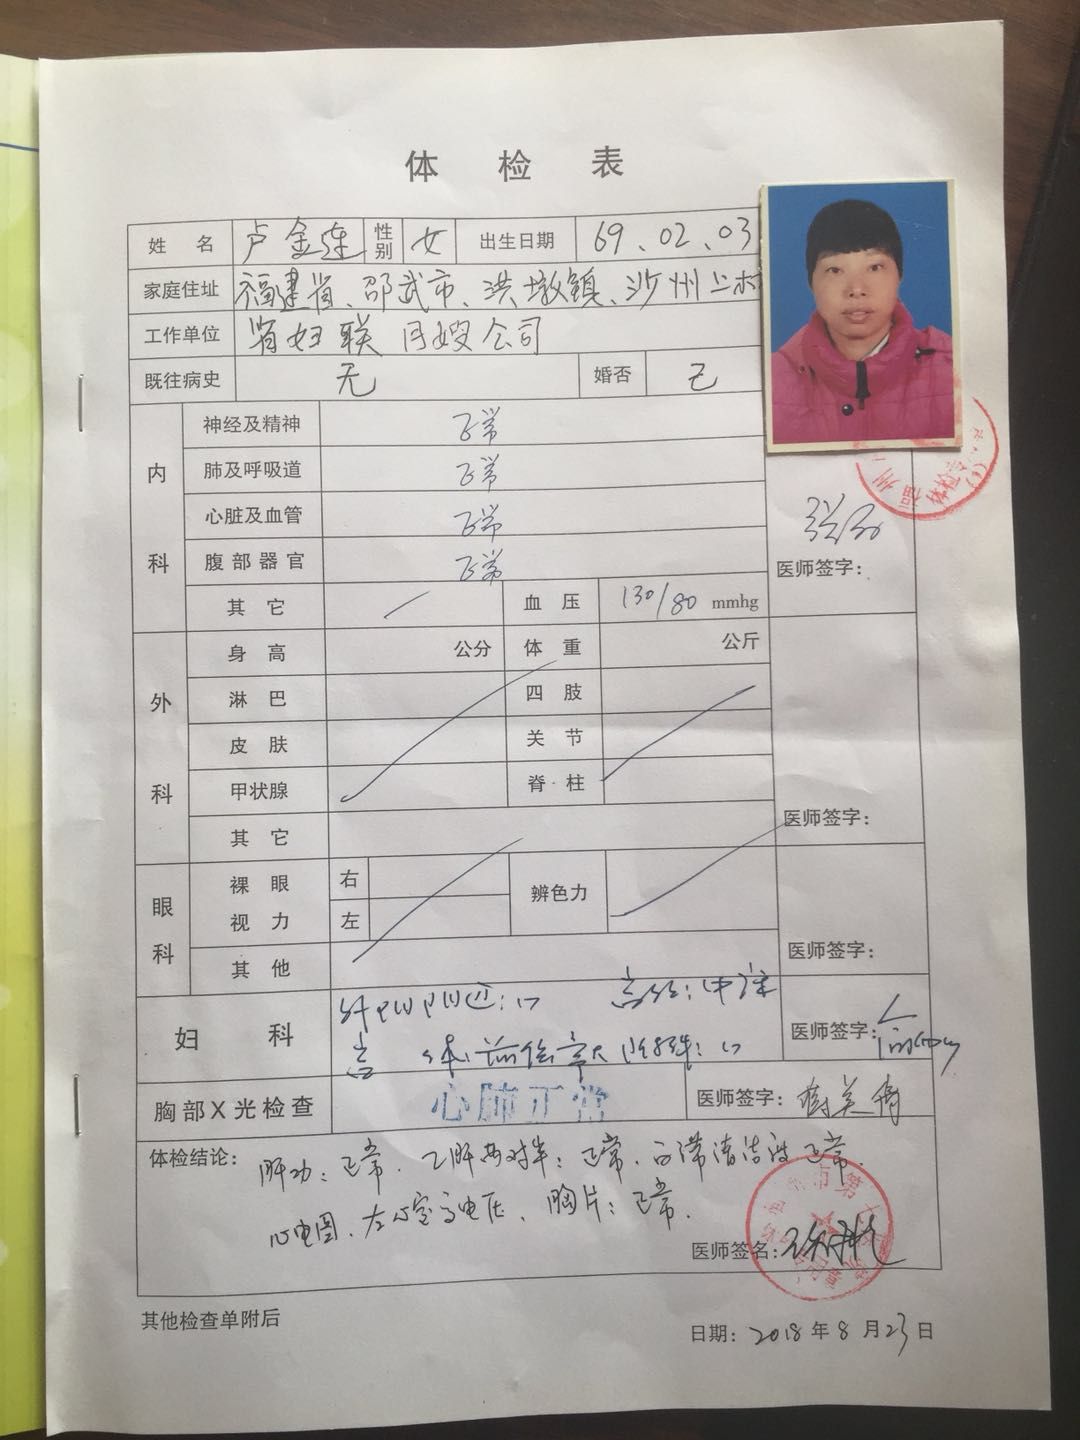 体 检 表
姓 名 卢金连 性别 女 出生日期 69.02.03
家庭住址 福建省、邵武市、洪墩镇、沙州上村
工作单位 省妇联月嫂公司
既往病史 无 婚否 已
内科 神经及精神 正常
肺及呼吸道 正常
心脏及血管 正常
腹部器官 正常
医师签字:
其 它 血 压 130/80 mmhg
外科 身 高 公分 体 重 公斤
淋 巴 四 肢
皮 肤 关 节
甲状腺 脊·柱
其 它 医师签字:
眼科 裸眼视力 右 左 辨色力
其 他 医师签字:
妇 科 医师签字:
胸部X光检查 心肺正常 医师签字:
体检结论: 肝功:正常、乙肝两对半:正常、白带清洁度正常.
心电图、左心室高电压、胸片:正常.
医师签名:
其他检查单附后
日期: 2018年8月23日